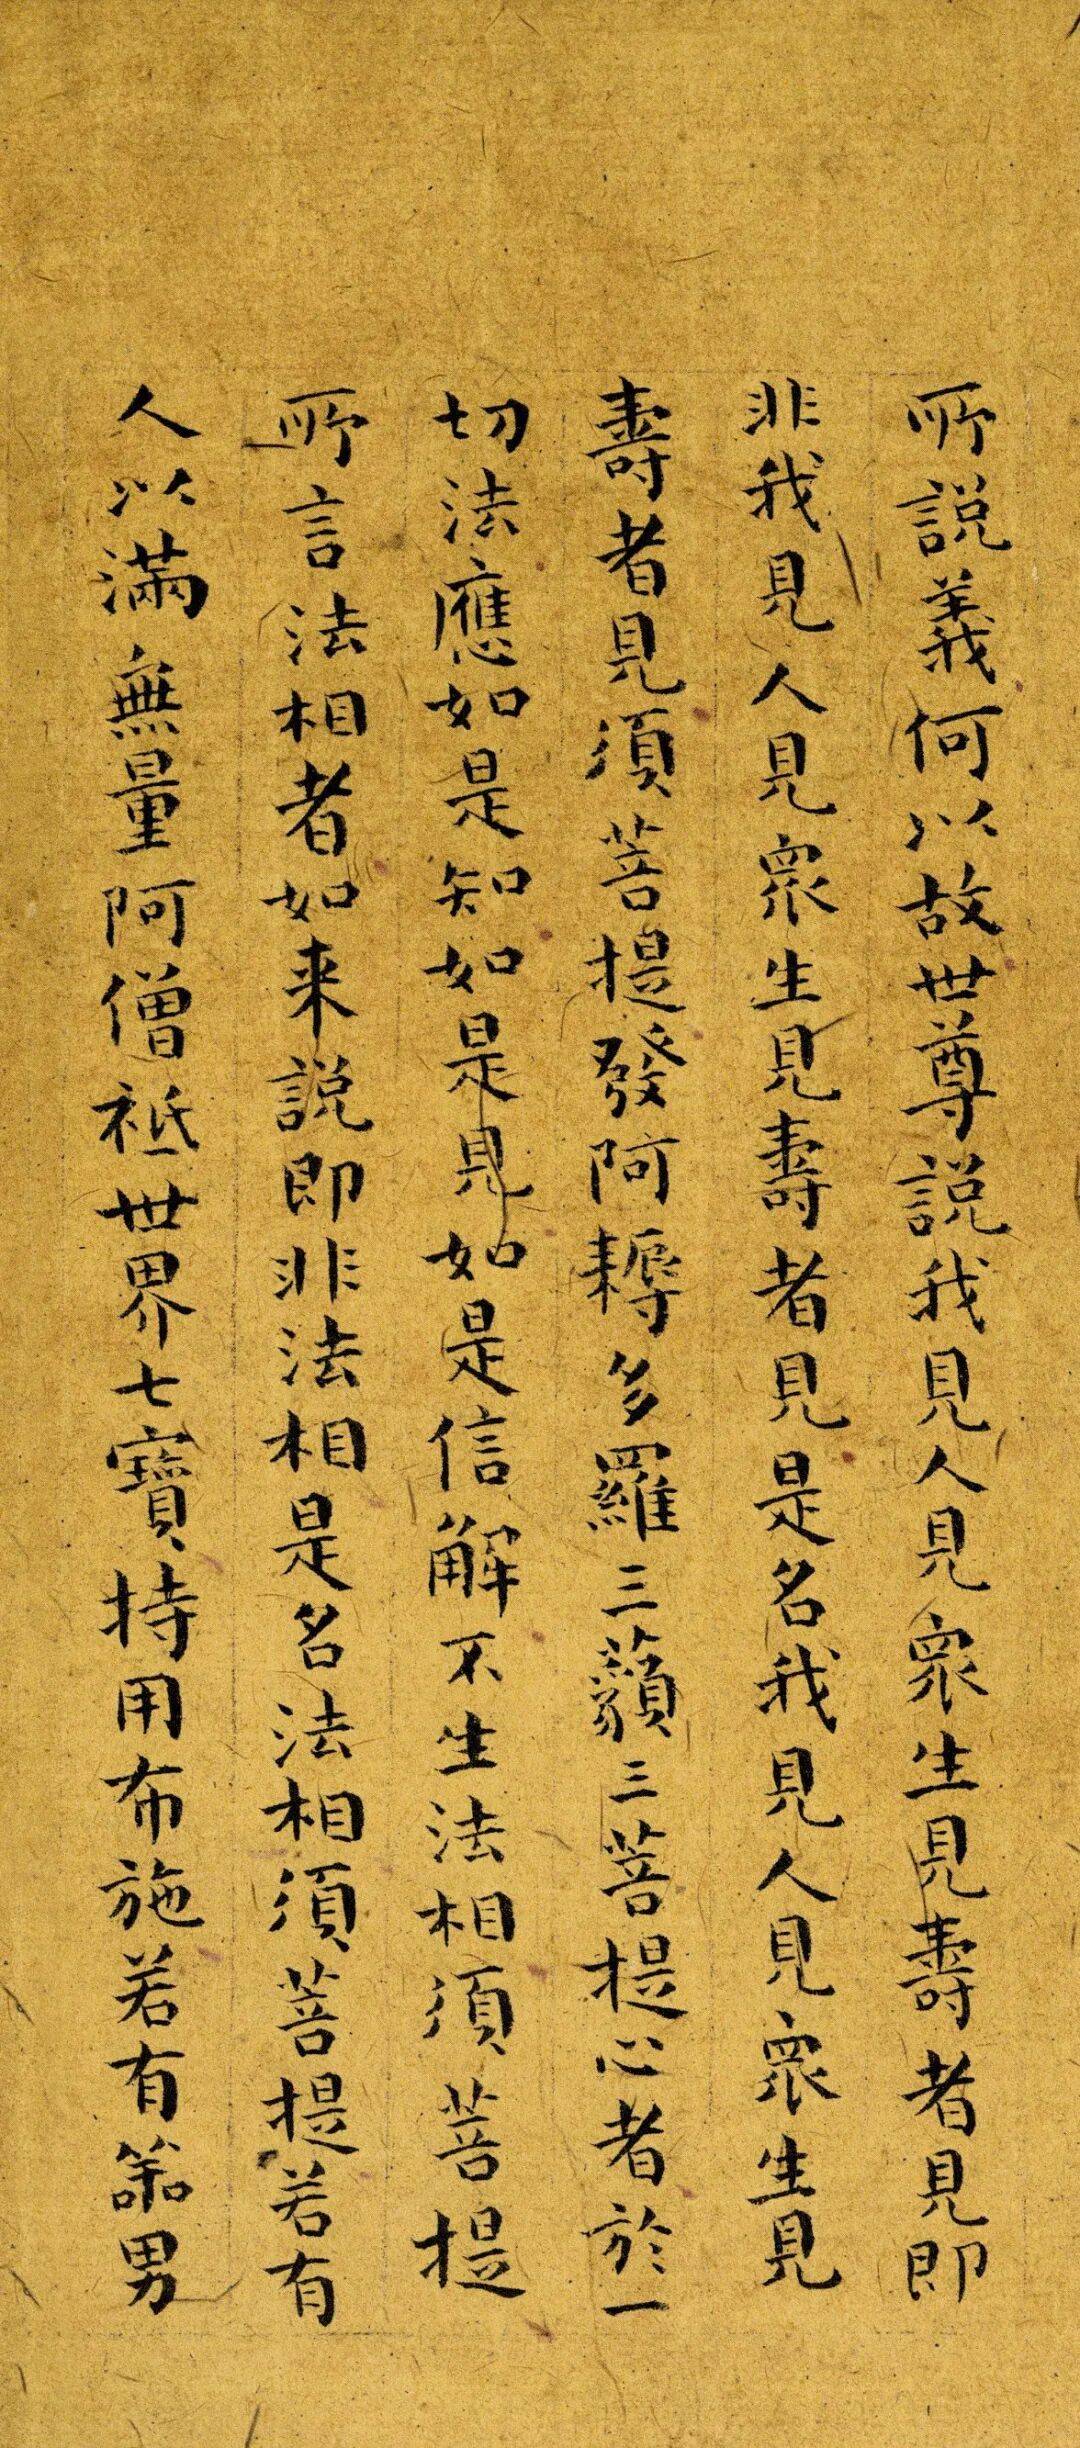 所說義何以故世尊說我見人見眾生見壽者見即
非我見人見眾生見壽者見是名我見人見眾生見
壽者見須菩提發阿耨多羅三藐三菩提心者於一
切法應如是知如是見如是信解不生法相須菩提
所言法相者如来說即非法相是名法相須菩提若有
人以滿無量阿僧祇世界七寶持用布施若有善男